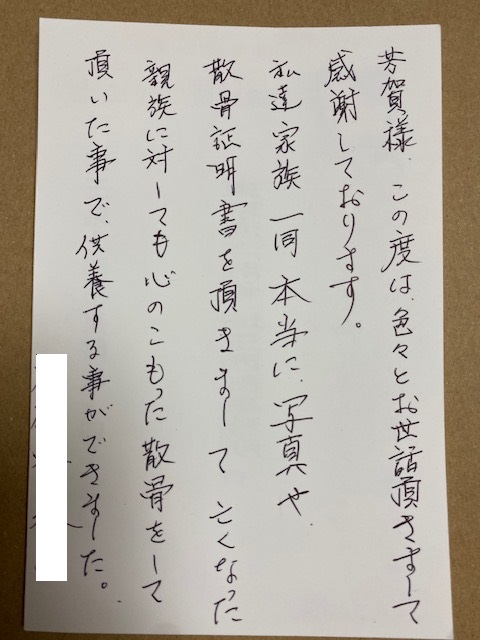 芳賀様、この度は、色々とお世話頂きまして
感謝しております。
私達家族一同本当に、写真や、
散骨証明書を頂きまして亡くなった
親族に対しても心のこもった散骨をして
頂いた事で、供養する事ができました。